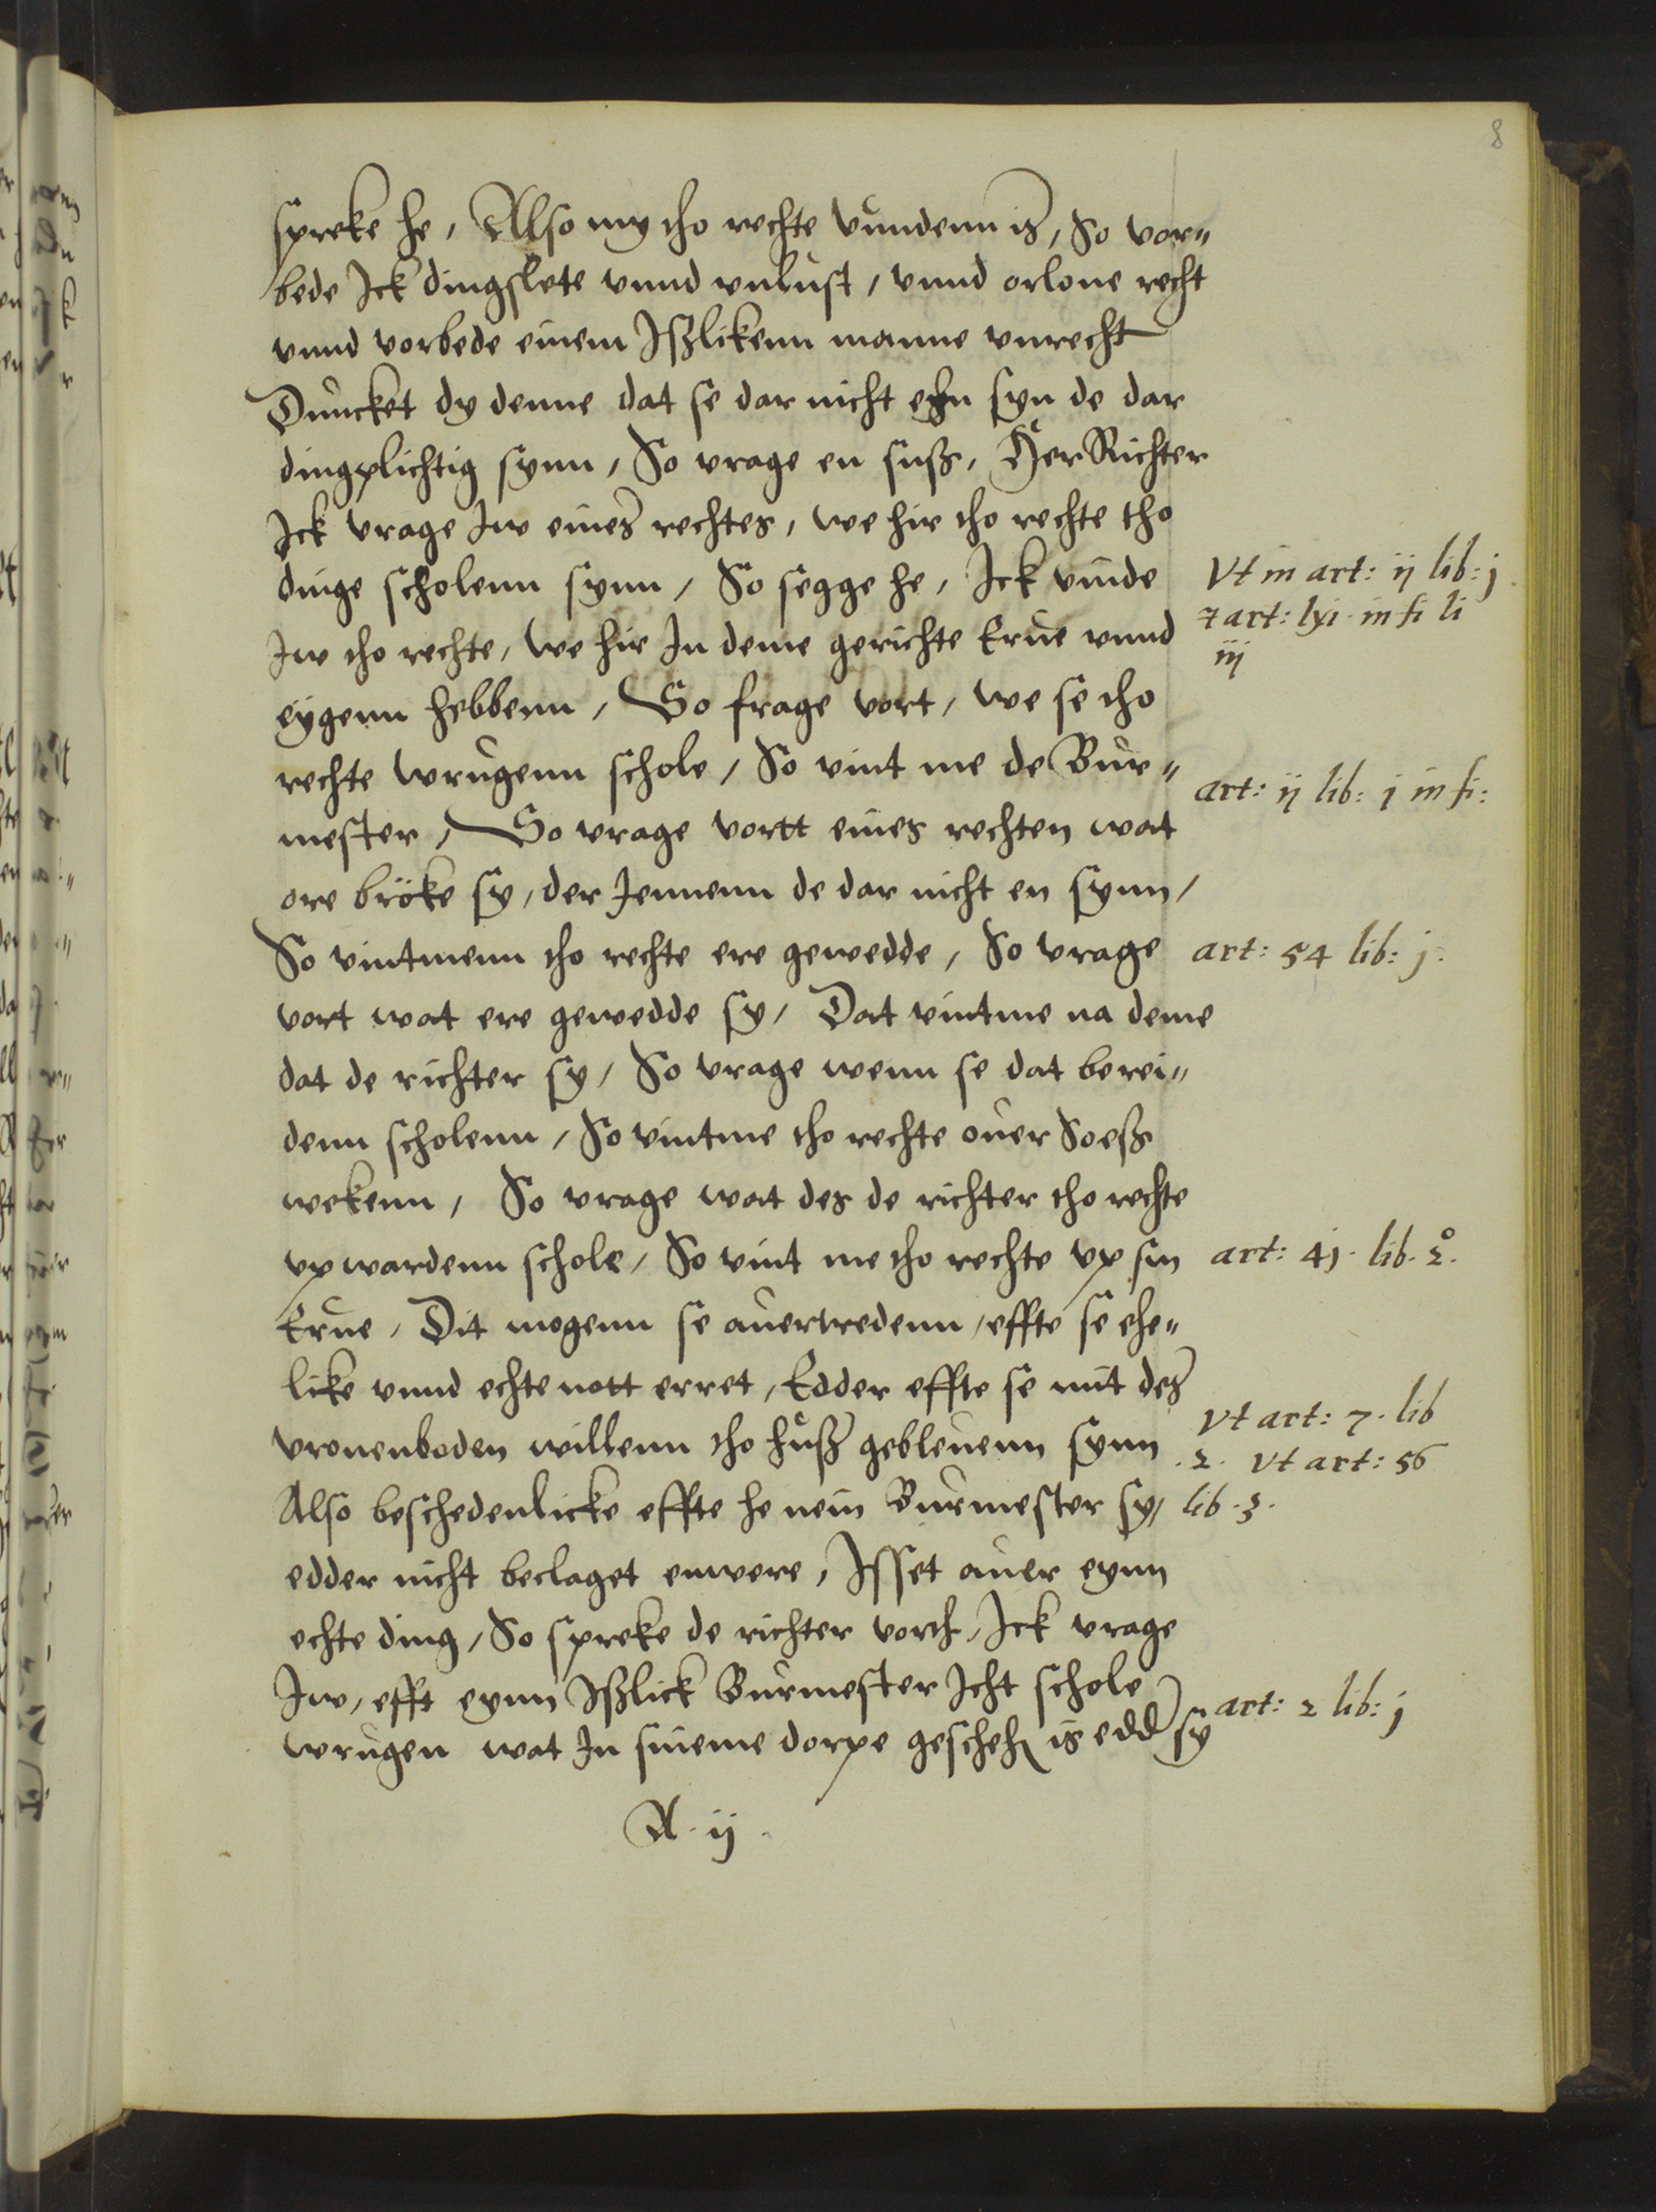 8
spreke he, Also my tho rechte vundenn is, So vor„
bede Ick dingslete vnnd vnlust, vnnd orlone recht
vnnd vorbede einem Ißlikenn manne vnrecht
Duncket dy denne dat se dar nicht ehn syn de dar
dingplichtig synn, So vrage en suß, Her Richter
Ick vrage Iw eines rechtes, we hir tho rechte tho
dinge scholenn synn, So segge he, Ick vinde
Vt in art: ij lib: j.
Iw tho rechte, we hir In deme gerichte Erue vnnd
⁊ art: lxi. in fi li
iij
eÿgenn hebbenn, So frage vort, we se tho
rechte wrugenn schole, So vint me de Bur„
art: ij lib: j in fi:
mester, So vrage vortt eines rechten wat
ore bröke sy, der Jennenn de dar nicht en synn,
So vintmenn tho rechte ere gewedde, So vrage
art: 54 lib: j.
vort wat ere gewedde sy, Dat vintme na deme
dat de richter sy, So vrage wenn se dat berei„
denn scholenn, So vintme tho rechte ouer Soeß
wekenn, So vrage wat des de richter tho rechte
vpwardenn schole, So vint me tho rechte vp sin
art: 4j. lib. 2º.
Erue, Dit mogenn se auertredenn, effte se ehe„
like vnnd echte nott erret, Edder effte se mit des
vronenboden willenn tho huß gebleuenn synn
Vt art: 7. lib
.2. Vt art: 56
Also beschedenlicke effte he nein Burmester sy,
lib. 3.
edder nicht beclaget enwere, Isset auer eynn
echte ding, So spreke de richter vorth, Ick vrage
Iw, efft eynn Ißlick Burmester Icht schole
wrugen wat In sineme dorpe gescheh is edd sy
art: 2 lib: j
A. ij.